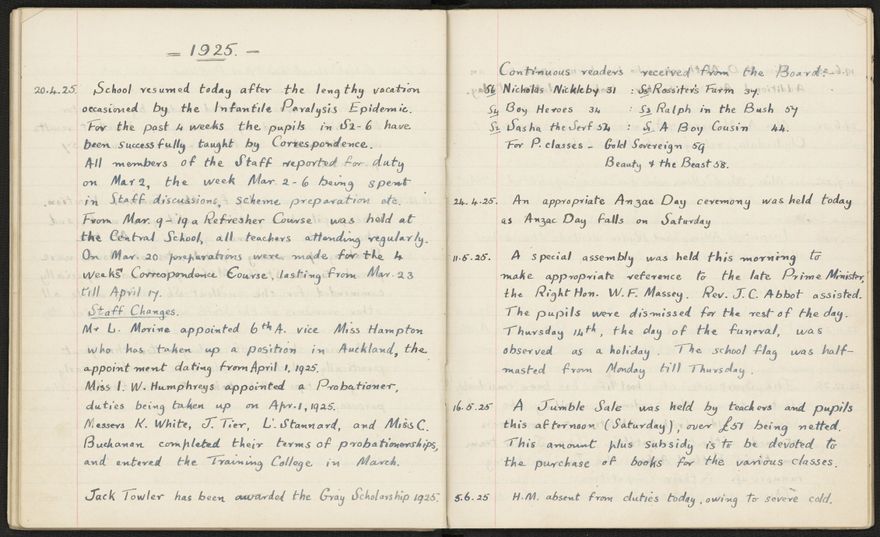 = 1925. -
20.4.25. School resumed today after the lengthy vacation
occasioned by the Infantile Paralysis Epidemic.
For the past 4 weeks the pupils in S2-6 have
been successfully taught by Correspondence.
All members of the Staff reported for duty
on Mar 2, the week Mar. 2-6 being spent
in Staff discussions, scheme preparation etc.
From Mar. 9-19 a Refresher Course was held at
the Central School, all teachers attending regularly.
On Mar. 20 preparations were made for the 4
weeks' Correspondence Course, lasting from Mar. 23
till April 17.
Staff Changes.
Mr L. Morine appointed 6th A. vice Miss Hampton
who has taken up a position in Auckland, the
appointment dating from April 1, 1925.
Miss I. W. Humphreys appointed a Probationer,
duties being taken up on Apr. 1, 1925.
Messers K. White, J. Tier, L. Stannard, and Miss C.
Buchanan completed their terms of probationerships,
and entered the Training College in March.
Jack Towler has been awarded the Gray Scholarship 1925.
Continuous readers received from the Board:-
S6 Nicholas Nickleby 31 : S5 Rossiter's Farm 34.
S4 Boy Heroes 34 : S3 Ralph in the Bush 57
S2 Sasha the Serf 52 : S1 A Boy Cousin 44.
For P. classes - Gold Sovereign 59
Beauty & the Beast 58.
24.4.25. An appropriate Anzac Day ceremony was held today
as Anzac Day falls on Saturday
11.5.25. A special assembly was held this morning to
make appropriate reference to the late Prime Minister,
the Right Hon. W.F. Massey. Rev. J.C. Abbot assisted.
The pupils were dismissed for the rest of the day.
Thursday 14th, the day of the funeral, was
observed as a holiday. The school flag was half-
masted from Monday till Thursday.
16.5.25 A Jumble Sale was held by teachers and pupils
this afternoon (Saturday), over £51 being netted.
This amount plus subsidy is to be devoted to
the purchase of books for the various classes.
5.6.25 H.M. absent from duties today, owing to severe cold.